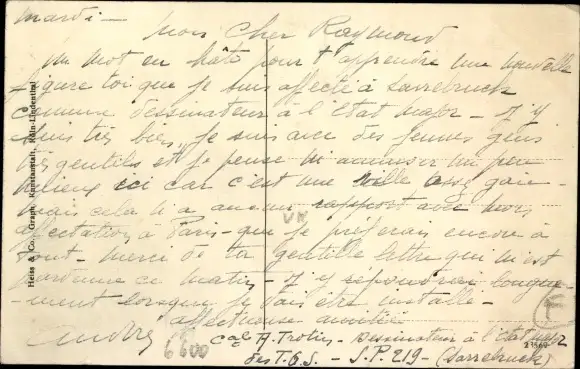 mardi —
mon cher Raymond
un mot en hâte pour t'apprendre une nouvelle
figure toi que je suis affecté à Sarrebruck
comme dessinateur à l'Etat major — J'y
suis très bien, je suis avec des jeunes gens
très gentils et je pense m'amuser un peu
mieux ici car c'est une ville assez gaie —
mais cela n'a aucun rapport avec mon
affectation à Paris — que je préférais encore à
tout — merci de ta gentille lettre qui m'est
ce matin — J'y répondrai longue-
ment lorsque je vais être installé —
affectueuse amitié
André
6600
Cal A. Trotin — Dessinateur à l'Etat major
des T.O.S. — S.P. 219 — (Sarrebruck)
Heiss & Co., Graph. Kunstanstalt, Köln-Lindenthal